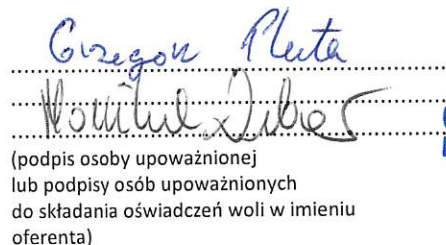 Grzegorz Pluta
Monika
(podpis osoby upoważnionej
lub podpisy osób upoważnionych
do składania oświadczeń woli w imieniu
oferenta)